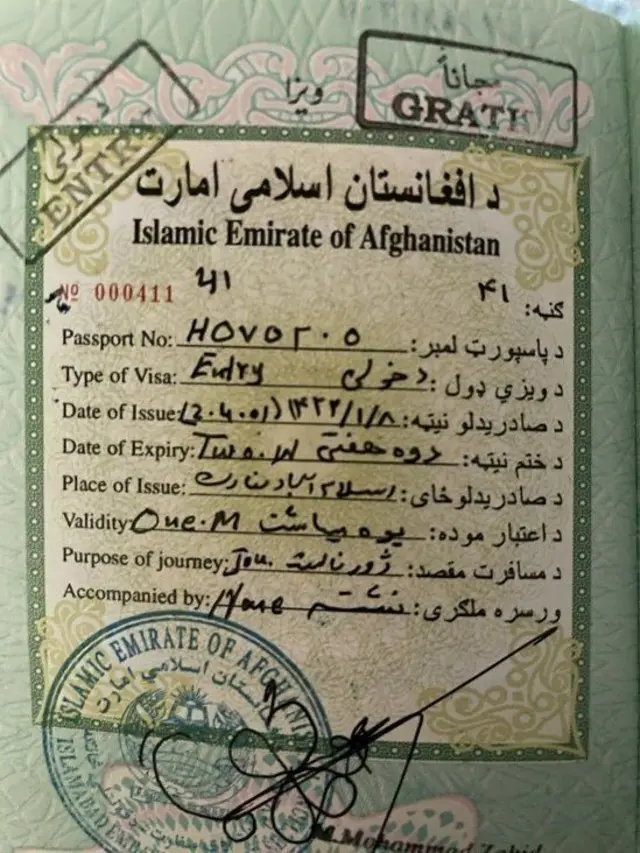 مجاناً
GRATI
ویزا
دخولی
ENTRY
د افغانستان اسلامی امارت
Islamic Emirate of Afghanistan
41 ۴۱ ګڼه:
Nº 000411
Passport No: د پاسپورټ لمبر:
Type of Visa: Entry دخولی د ویزې ډول:
Date of Issue: (2.4.01) ۱۴۲۲/۱/۸ د صادریدلو نیټه:
Date of Expiry: Two.W دوه هفتې د ختم نیټه:
Place of Issue: اسلام آباد د صادریدلو ځای:
Validity One.M یوه میاشت د اعتبار موده:
Purpose of journey: Jou. ژورنالست د مسافرت مقصد:
Accompanied by: None نشته ورسره ملګری:
ISLAMIC EMIRATE OF AFGHANIS
افغانستان اسلامی امارت
ISLAMABAD
M. Mohammad Zahid